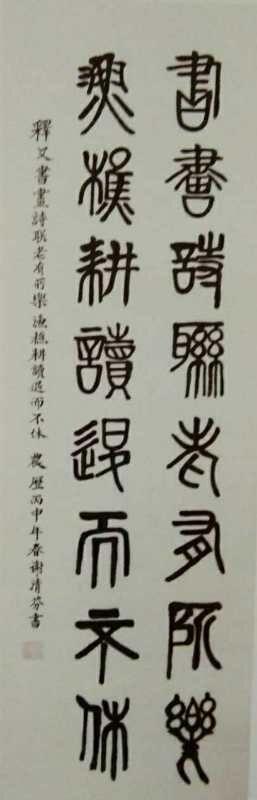 書畫詩聯老有所樂
漁樵耕讀退而不休
釋文書畫詩联老有所樂漁樵耕讀退而不休 農歷丙申年春谢清芬書